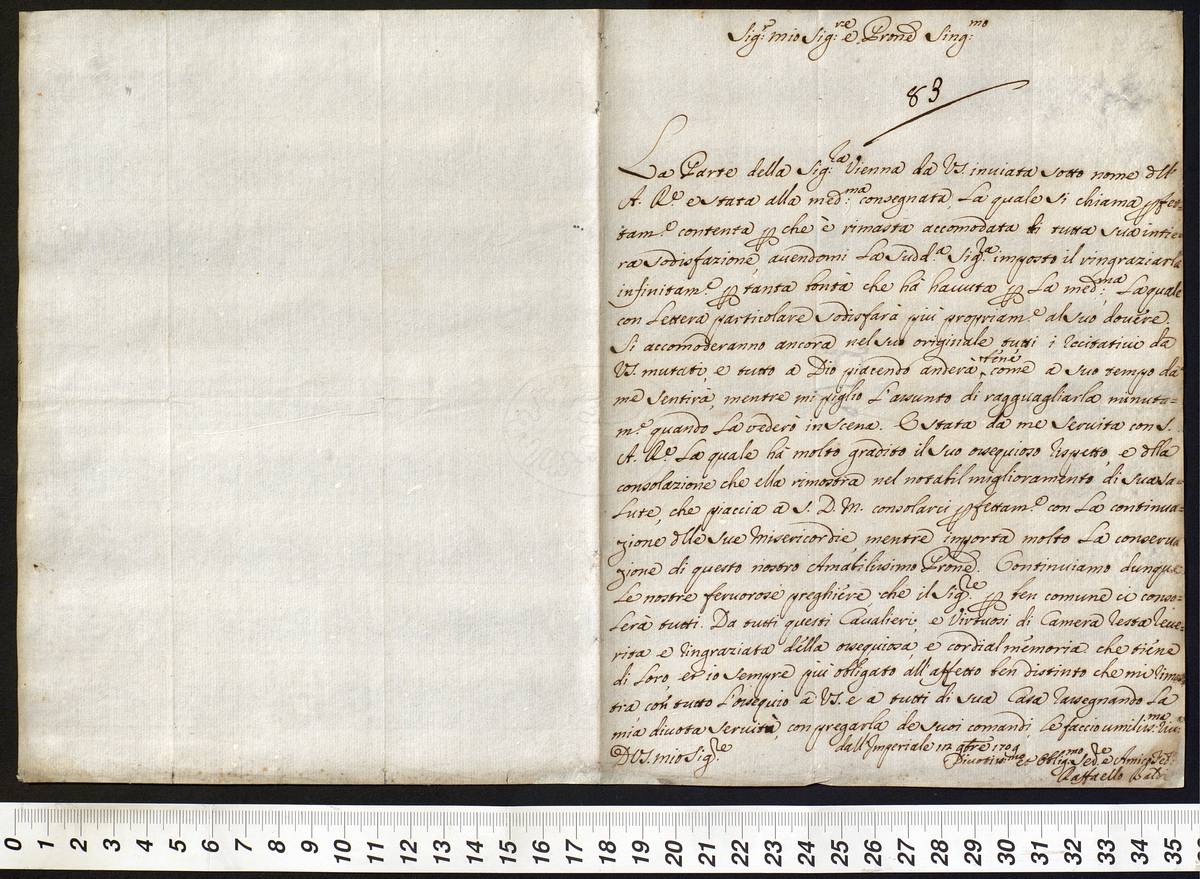 Sig.r mio Sig.re e Prone Sing.mo
83
La Parte della Sig.ra Vienna da VS. inviata sotto nome dell'
A. R.e e stata alla med.ma consegnata, La quale si chiama pfet-
tam.e contenta p che è rimasta accomodata di tutta sua intie-
ra sodisfazione, avendomi La Sudd.a Sig.ra imposto il ringraziarla
infinitam.e p tanta bontà che hà havuta p La med.ma, La quale
con Lettera particolare sodisfarà più propriam.e al suo dovere.
Si accomoderanno ancora nel suo originale tutti i recitativi da
VS. mutati, e tutto a Dio piacendo anderà bene come a suo tempo da
me sentirà, mentre mi piglio L'assunto di ragguagliarla minuta-
m.e quando La vederò in scena. E stata da me servita con S.
A. R.e La quale hà molto gradito il suo ossequioso rispetto, e dlla
consolazione che ella rimostra nel notabil miglioramento di sua sa-
lute, che piaccia a S. D. M. consolarci pfettam.e con La continua-
zione dlle sue Misericordie mentre inporta molto La conserva
zione di questo nostro Amabilissimo Prone. Continuiamo dunque
Le nostre fervorose preghiere, che il Sig.re p ben comune ci conso-
lerà tutti. Da tutti questi Cavalieri, e Virtuosi di Camera resta reve-
rita e ringraziata della ossequiosa, e cordial memoria che tiene
di Loro, et io sempre più obligato all'affetto ben distinto che mi rimos
tra con tutto L'ossequio a VS. e a tutti di sua Casa rassegnando La
mia divota servitù, con pregarla de suoi comandi, Le faccio umiliss.ma riv:
D VS. mio Sig.re
dall'Imperiale 12 9bre 1709
Divotiss.mo et Oblig.mo Se.re e Amico
Raffaello